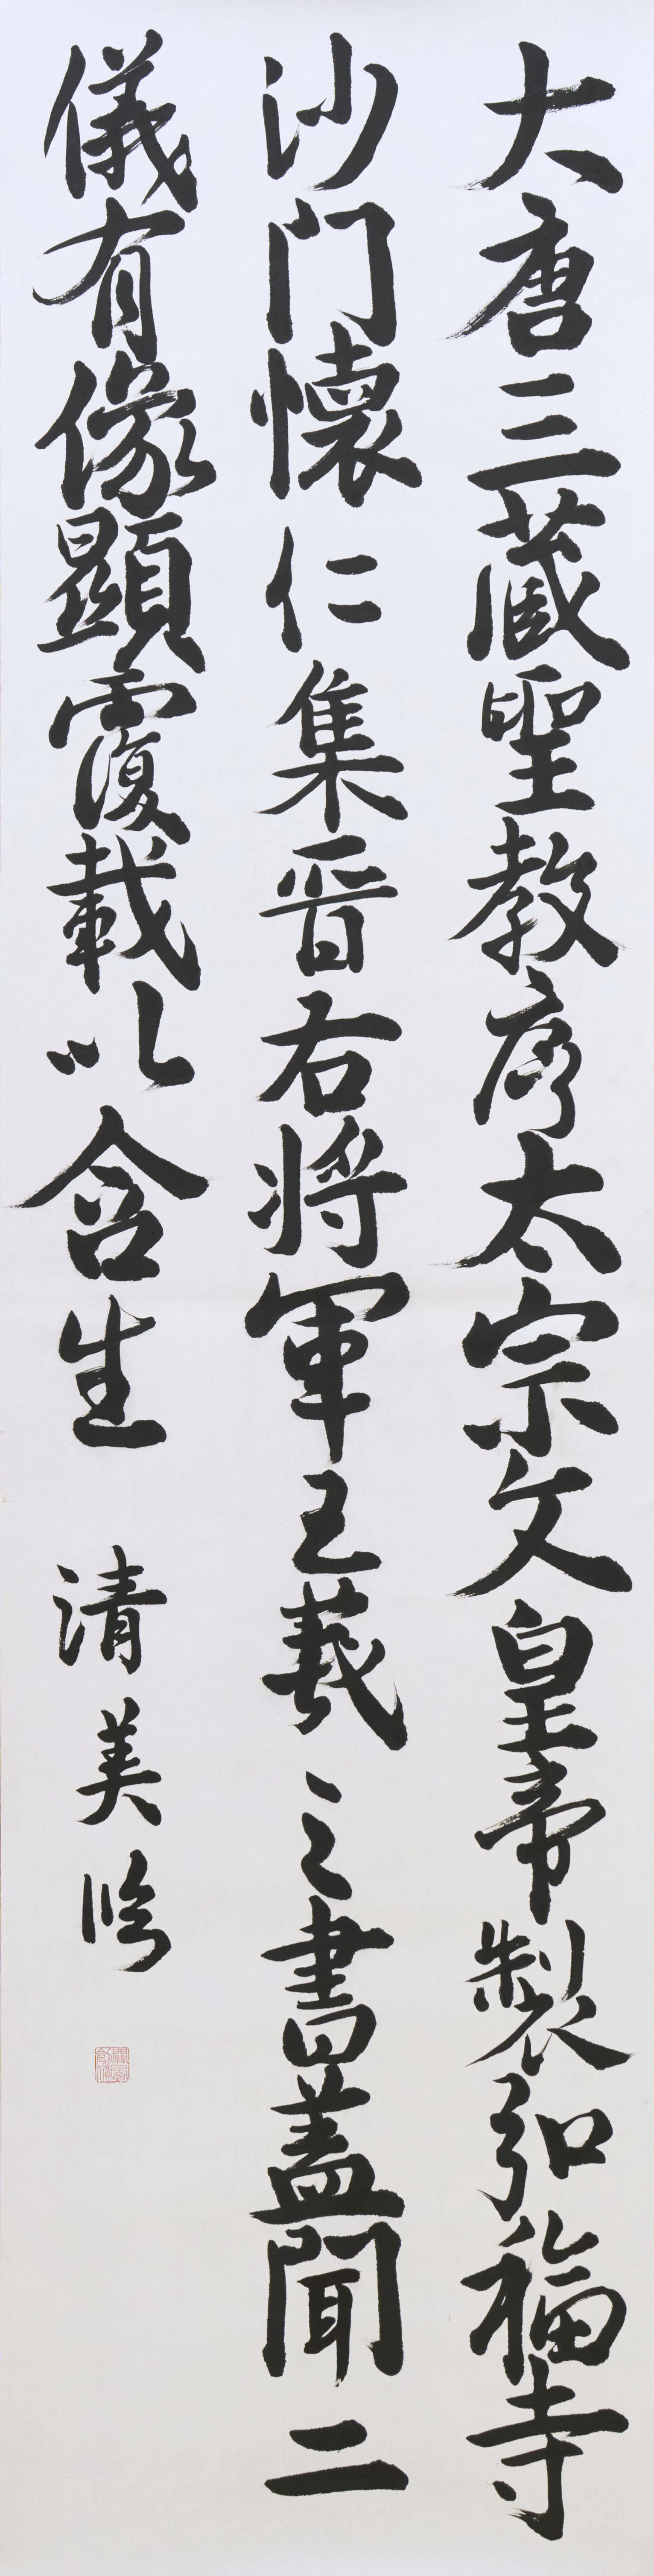 大唐三蔵聖教序太宗文皇帝製弘福寺
沙門懐仁集晋右将軍王羲之書蓋聞二
儀有像顕覆載以含生
清美